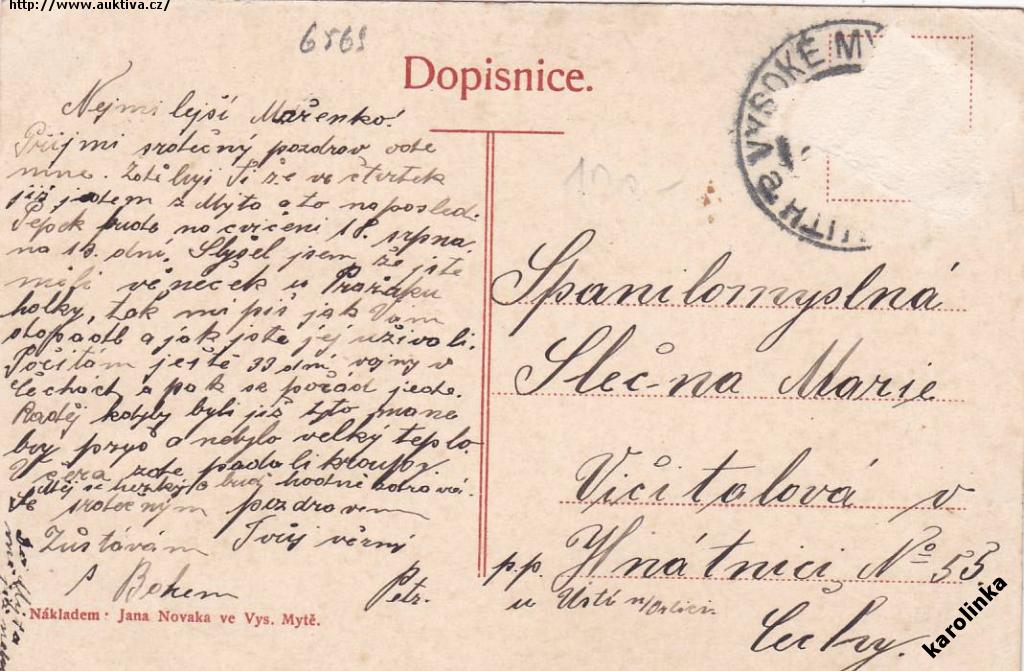 http://www.auktiva.cz/
6569
Dopisnice.
VYSOKÉ MÝ
Nejmilejší Mářenko!
Přijmi srdečný pozdrav ode
mne. Zděluji Ti že ve čtvrtek
již jedem z Mýta a to naposled.
Pepek bude na cvičení 18. srpna
na 13. dní. Slyšel jsem že jste
měli věneček u Pražáku
holky, tak mi piš jak Vám
dopadl a jak jste jej užívali.
Počítám ještě 33 dní vojny v
Čechách a pak se pořád jede.
Raděj kdyby byli již tyto
pryč a nebylo velký teplo.
Včera zde padali kroupy.
Měj se hezky a buď hodně
Se srdečným pozdravem
Zůstávám Tvůj věrný
S Bohem Petr.
100.-
Spanilomyslná
Slečna Marie
Vičitalová v
Hnátnici No 53
p.p. u Ústí n/Orlicí
Čechy.
Nákladem: Jana Novaka ve Vys. Mytě.
karolinka